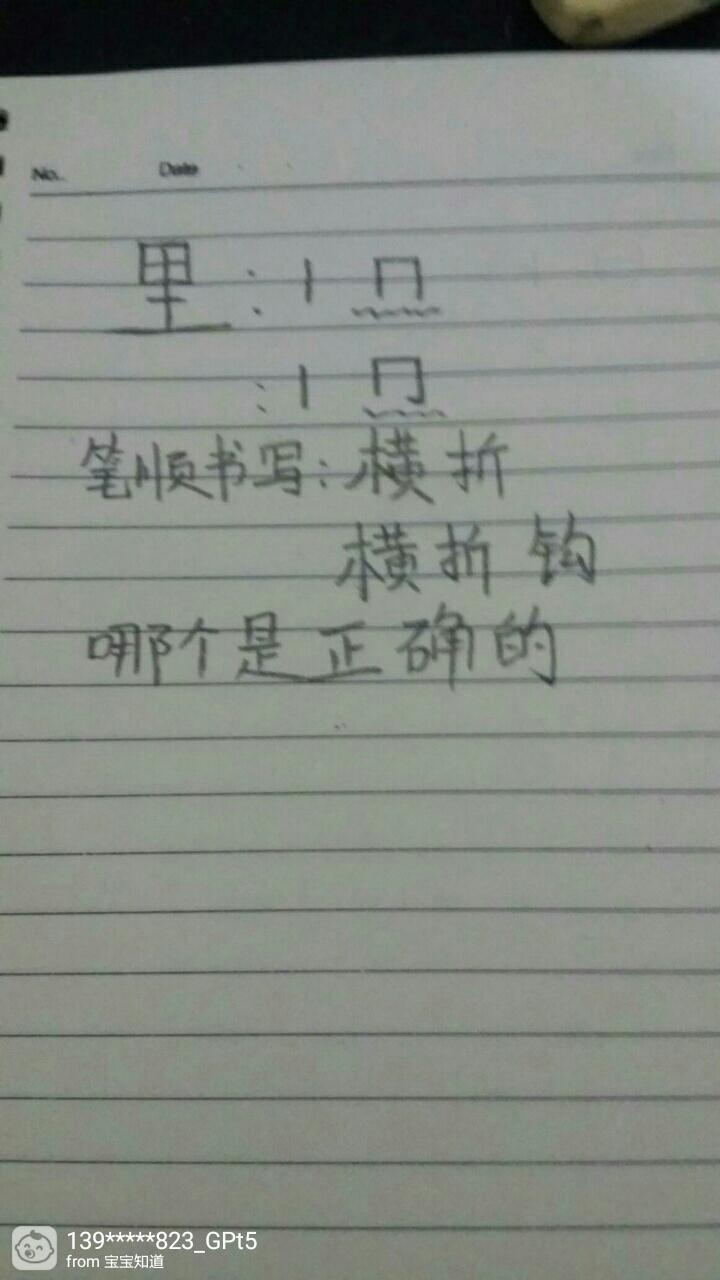 No.  Date
里:丨冂
:丨𠃌
笔顺书写:横折
横折钩
哪个是正确的
139*****823_GPt5
from 宝宝知道